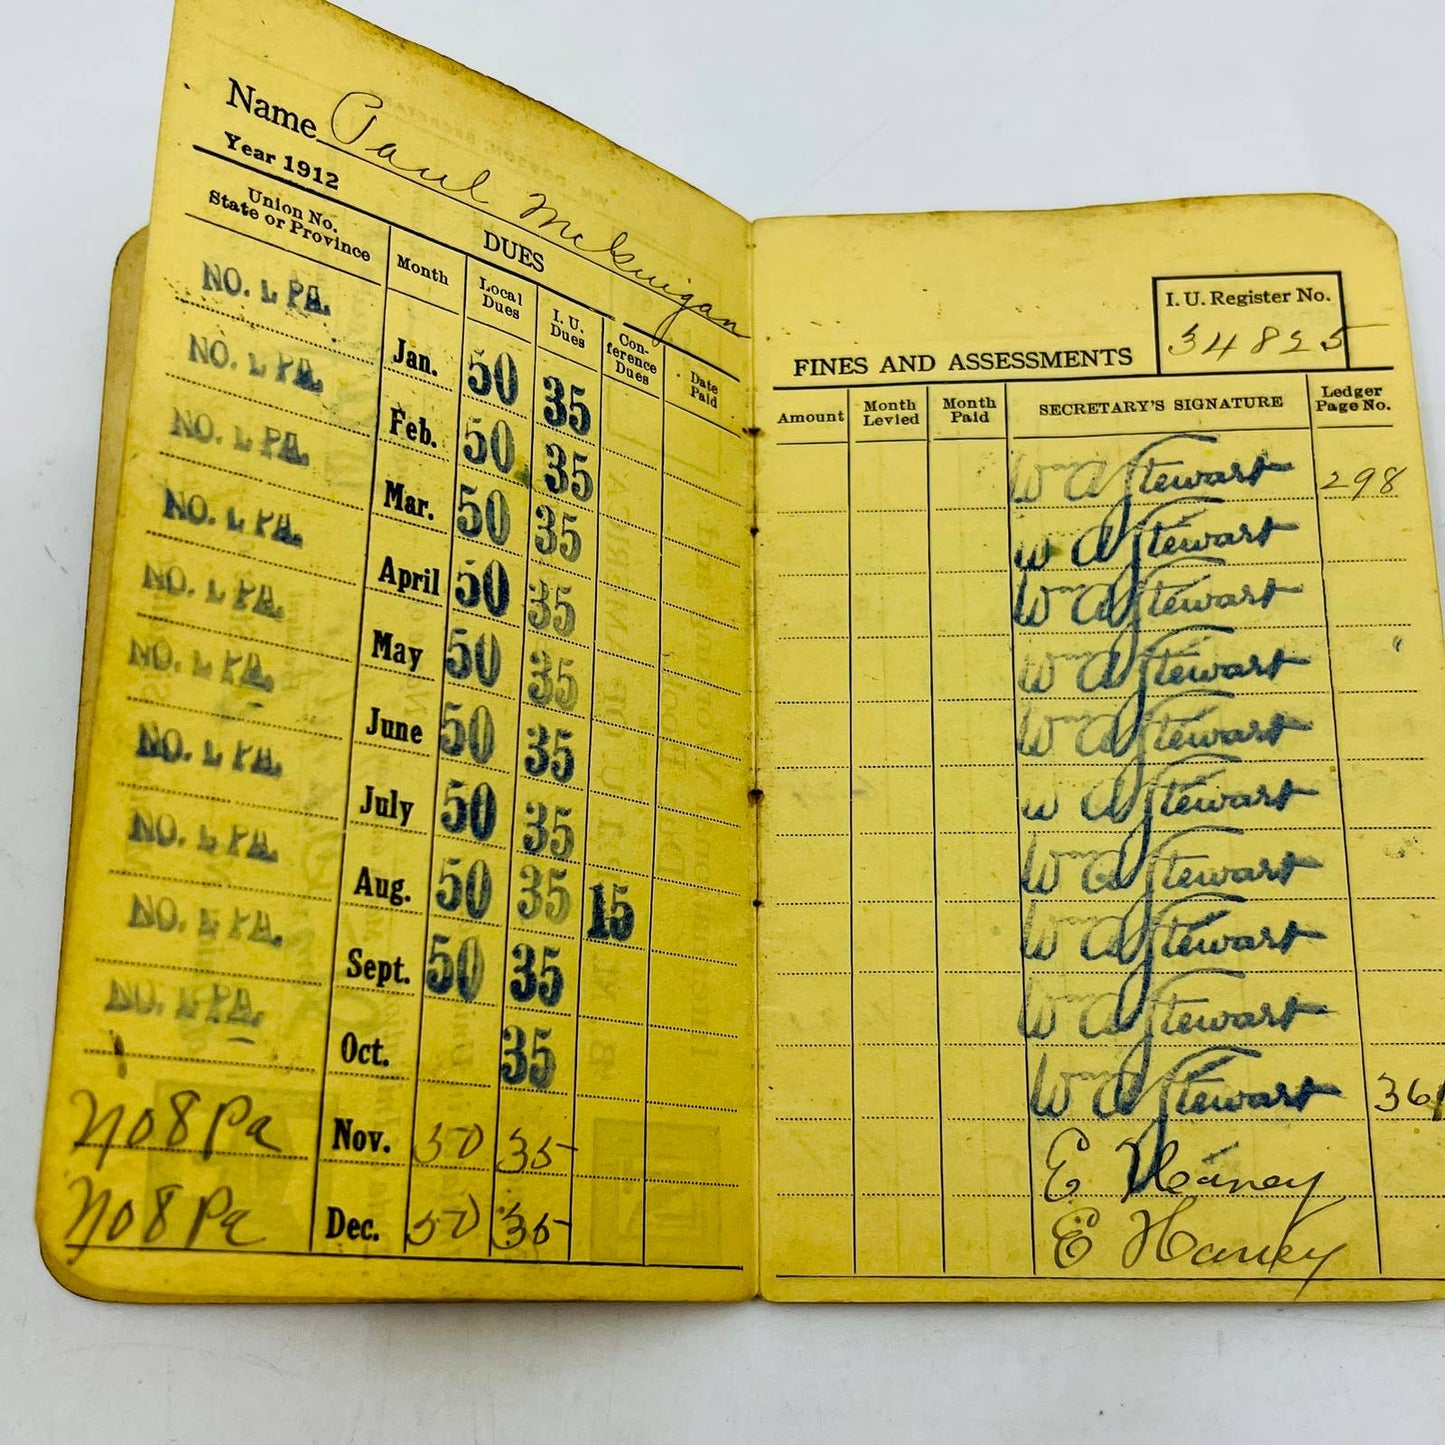 Name Paul McGuigan
Year 1912
DUES
Union No. State or Province Month Local Dues I. U. Dues Conference Dues Date Paid
NO. 1 PA. Jan. 50 35
NO. 1 PA. Feb. 50 35
NO. 1 PA. Mar. 50 35
NO. 1 PA. April 50 35
NO. 1 PA. May 50 35
NO. 1 PA. June 50 35
NO. 1 PA. July 50 35
NO. 1 PA. Aug. 50 35 15
NO. 1 PA. Sept. 50 35
NO. 1 PA. Oct. 35
No 8 Pa Nov. 50 35
No 8 Pa Dec. 50 35
I. U. Register No.
34825
FINES AND ASSESSMENTS
Amount Month Levied Month Paid SECRETARY'S SIGNATURE Ledger Page No.
Wm A Stewart 298
W A Stewart
Wm A Stewart
Wm A Stewart "
Wm A Stewart
W A Stewart
Wm A Stewart
Wm A Stewart
Wm A Stewart
Wm A Stewart
E Haney
E Haney